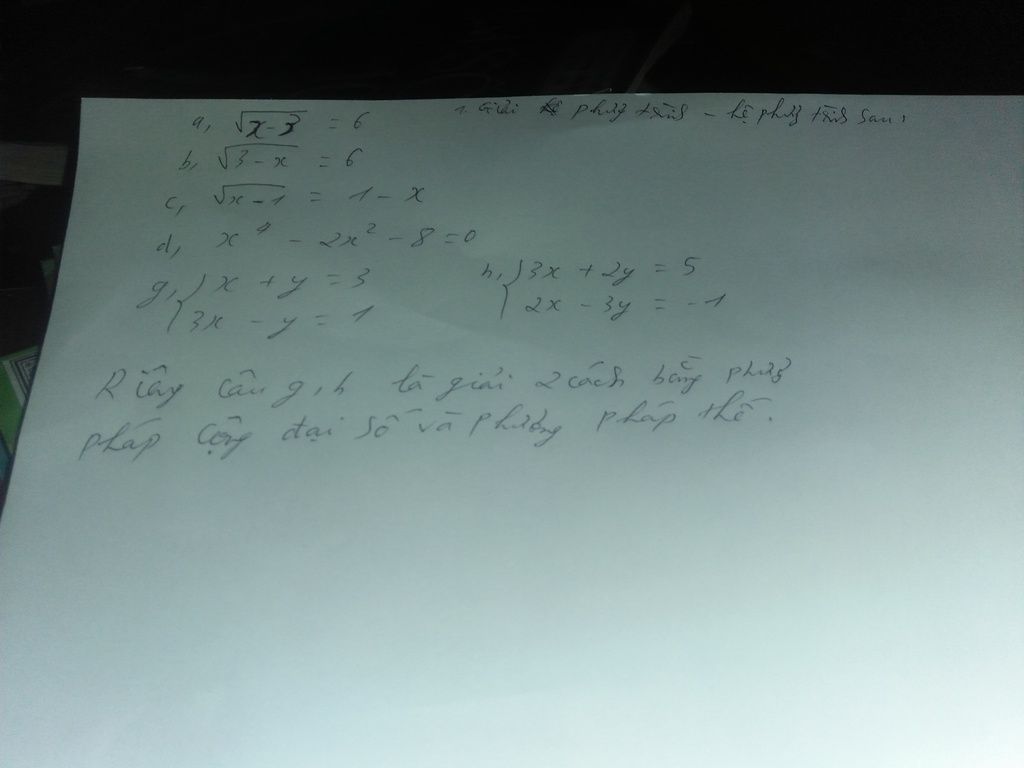 1. Giải phương trình - hệ phương trình sau:
a, √x-3 = 6
b, √3-x = 6
c, √x-1 = 1-x
d, x⁴ - 2x² - 8 = 0
g, { x + y = 3
3x - y = 1
h, { 3x + 2y = 5
2x - 3y = -1
Riêng câu g, h là giải 2 cách bằng phương
pháp cộng đại số và phương pháp thế.